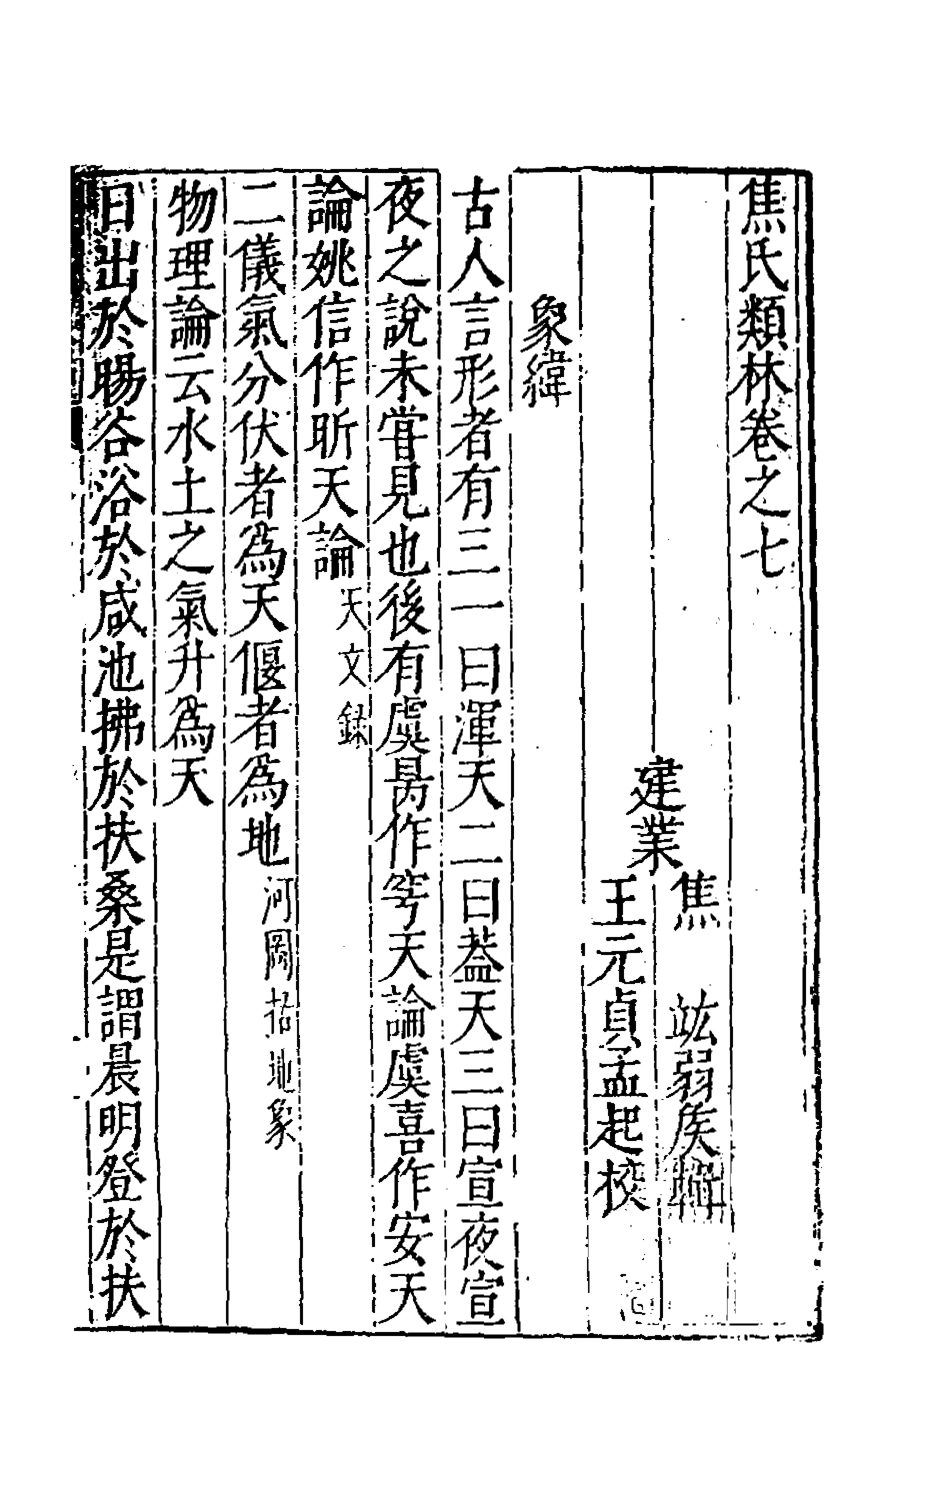 焦氏類林卷之七
建業
焦 竑弱矦輯
王元貞孟起校
象緯
古人言形者有三一曰渾天二曰葢天三曰宣夜宣
夜之說未嘗見也後有虞昺作穹天論虞喜作安天
論姚信作昕天論天文録
二儀氣分伏者爲天偃者爲地河圖括地象
物理論云水土之氣升爲天
日出於暘谷浴於咸池拂於扶桑是謂晨明登於扶